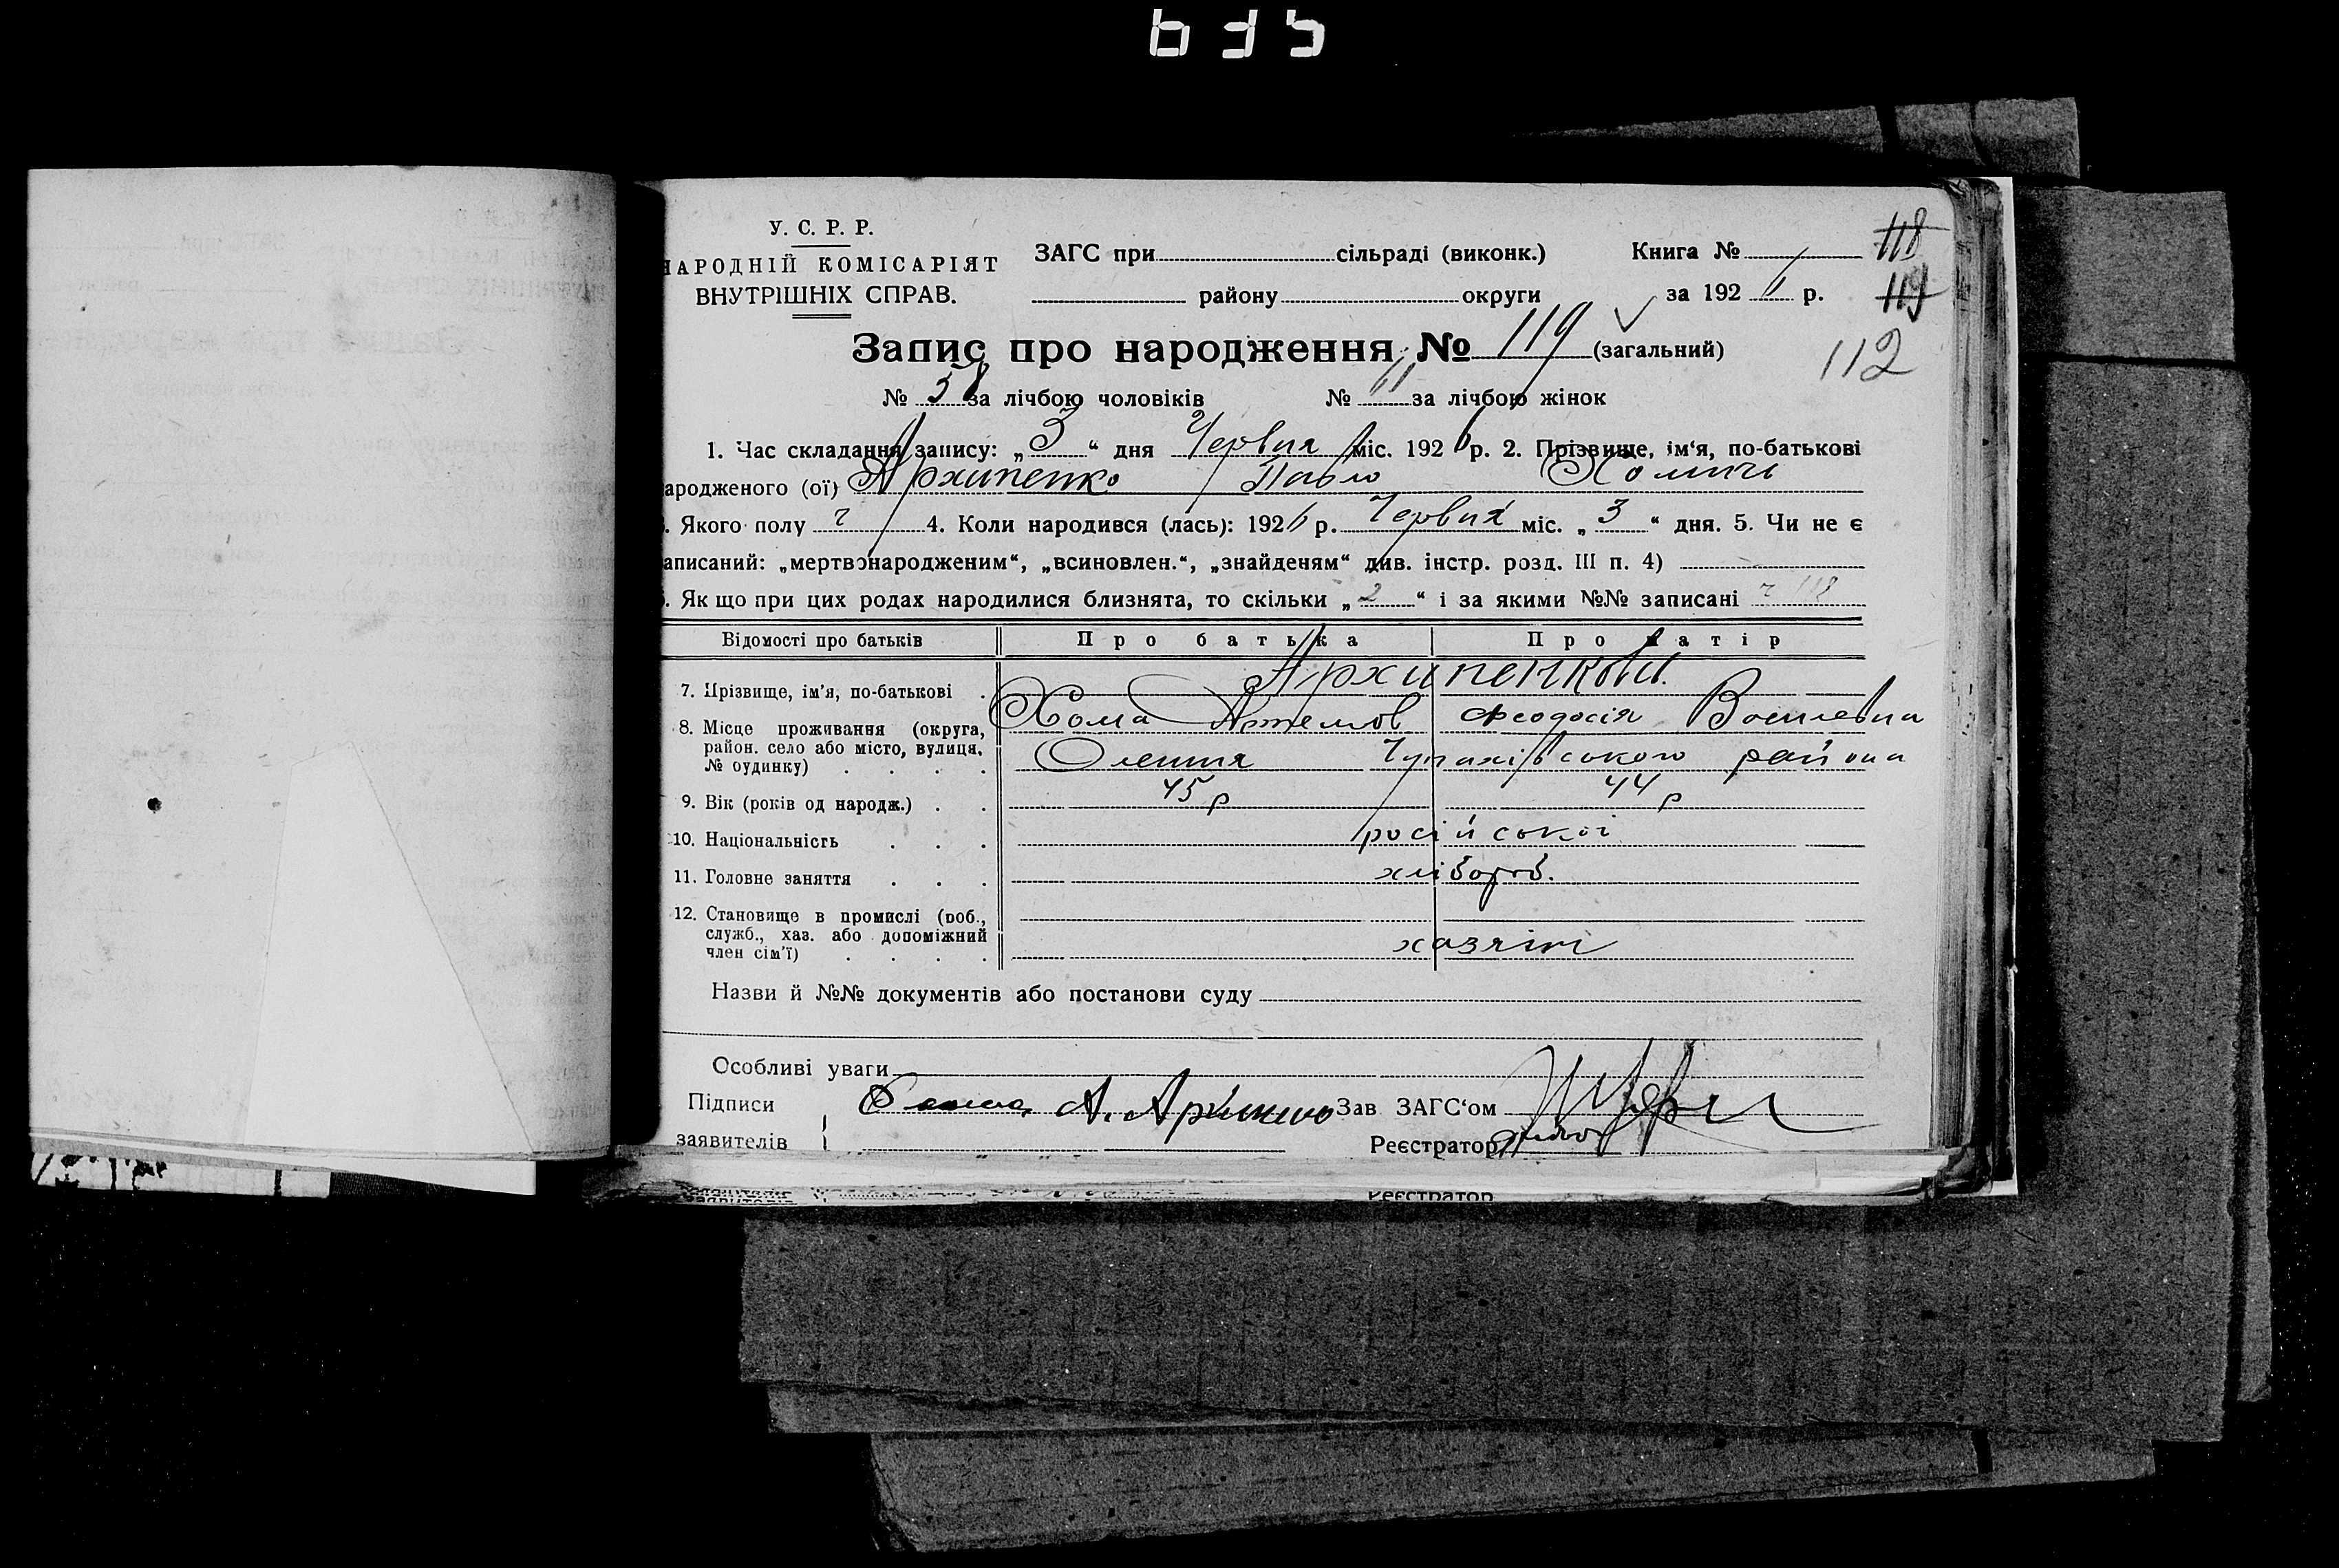 635
У. С. Р. Р.
НАРОДНІЙ КОМІСАРІЯТ
ВНУТРІШНІХ СПРАВ.
ЗАГС при сільраді (виконк.)
району округи
Книга №
за 192 6 р.
118
119
112
Запис про народження № 119 (загальний)
№ 58 за лічбою чоловіків № за лічбою жінок
1. Час складання запису: „ 3 “ дня Червня міс. 192 6 р. 2. Прізвище, ім‘я, по-батькові
ародженого (ої) Архипенко Павло Хомич
. Якого полу ч 4. Коли народився (лась): 192 6 р. Червня міс. „ 3 “ дня. 5. Чи не є
аписаний: „мертвонародженим“, „всиновлен.“, „знайденям“ див. інстр. розд. III п. 4)
. Як що при цих родах народилися близнята, то скільки „ 2 “ і за якими №№ записані ч 118
Відомості про батьків Про батька Про матір
Архипенкови.
7. Прізвище, ім‘я, по-батькові .
Хома Артемов Феодосія Василевна
8. Місце проживання (округа,
район. село або місто, вулиця,
№ будинку) . . . .
Олешня Чупахівського района
9. Вік (років од народж.) . . 45 р 44 р
10. Національність . . . російської
11. Головне заняття . . . хлібороб.
12. Становище в промислі (роб.,
служб., хаз. або допоміжний
член сім‘ї) . . . . хазяіт
Назви й №№ документів або постанови суду
Особливі уваги
Підписи
заявителів
А. Зав ЗАГС‘ом
Реєстратор
Реєстратор